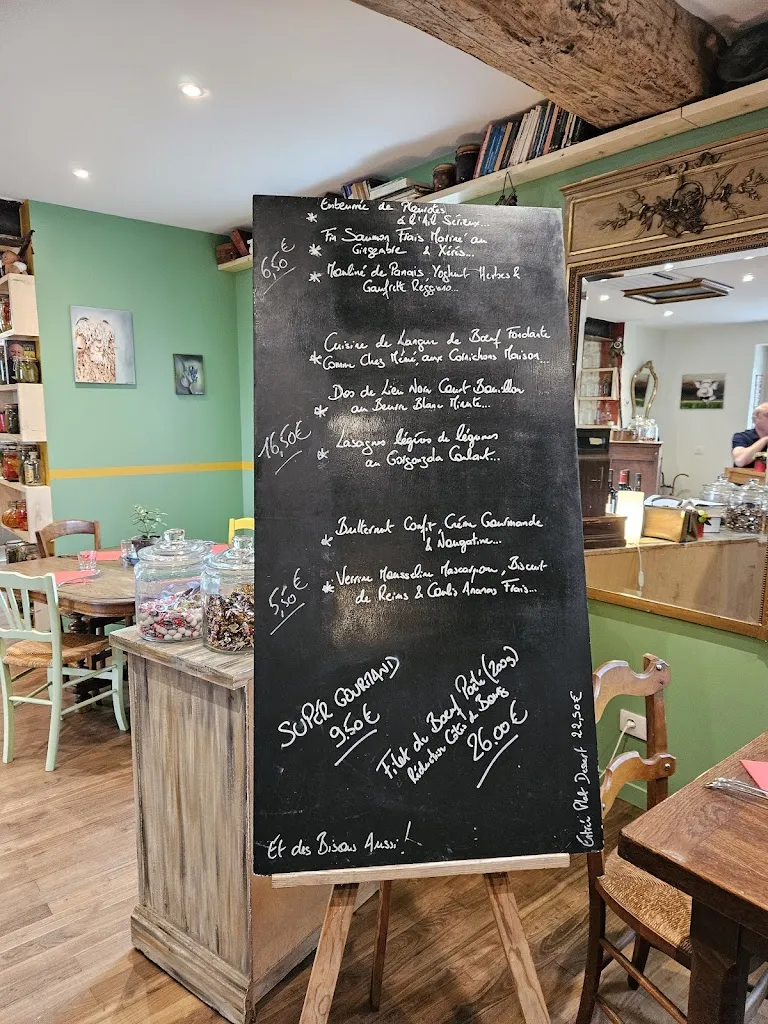 * Enterrée de
à l'Ail Sérieux...
* Fin Saumon Frais Mariné au
Gingembre & Xérès...
6,50€
* Mouliné de Panais, Yoghurt Herbes &
Gaufrette Reggiano...
Cuisine de Langue de Bœuf Fondante
* Comme Chez Mémé, aux Cornichons Maison...
Dos de Lieu Noir Court Bouillon
* au Beurre Blanc Minute...
16,50€
* Lasagnes légères de légumes
au Gorgonzola Coulant...
* Butternut Confit, Crème Gourmande
& Nougatine...
5,50€
* Verrine Mousseline Mascarpone, Biscuit
de Reims & Coulis Ananas Frais...
SUPER GOURMAND
9,50€
Filet de Bœuf Poêlé (200g)
Réduction Côtes de Bourg
26.00€
Entrée Plat Dessert 22,50€
Et des Bisous Aussi!